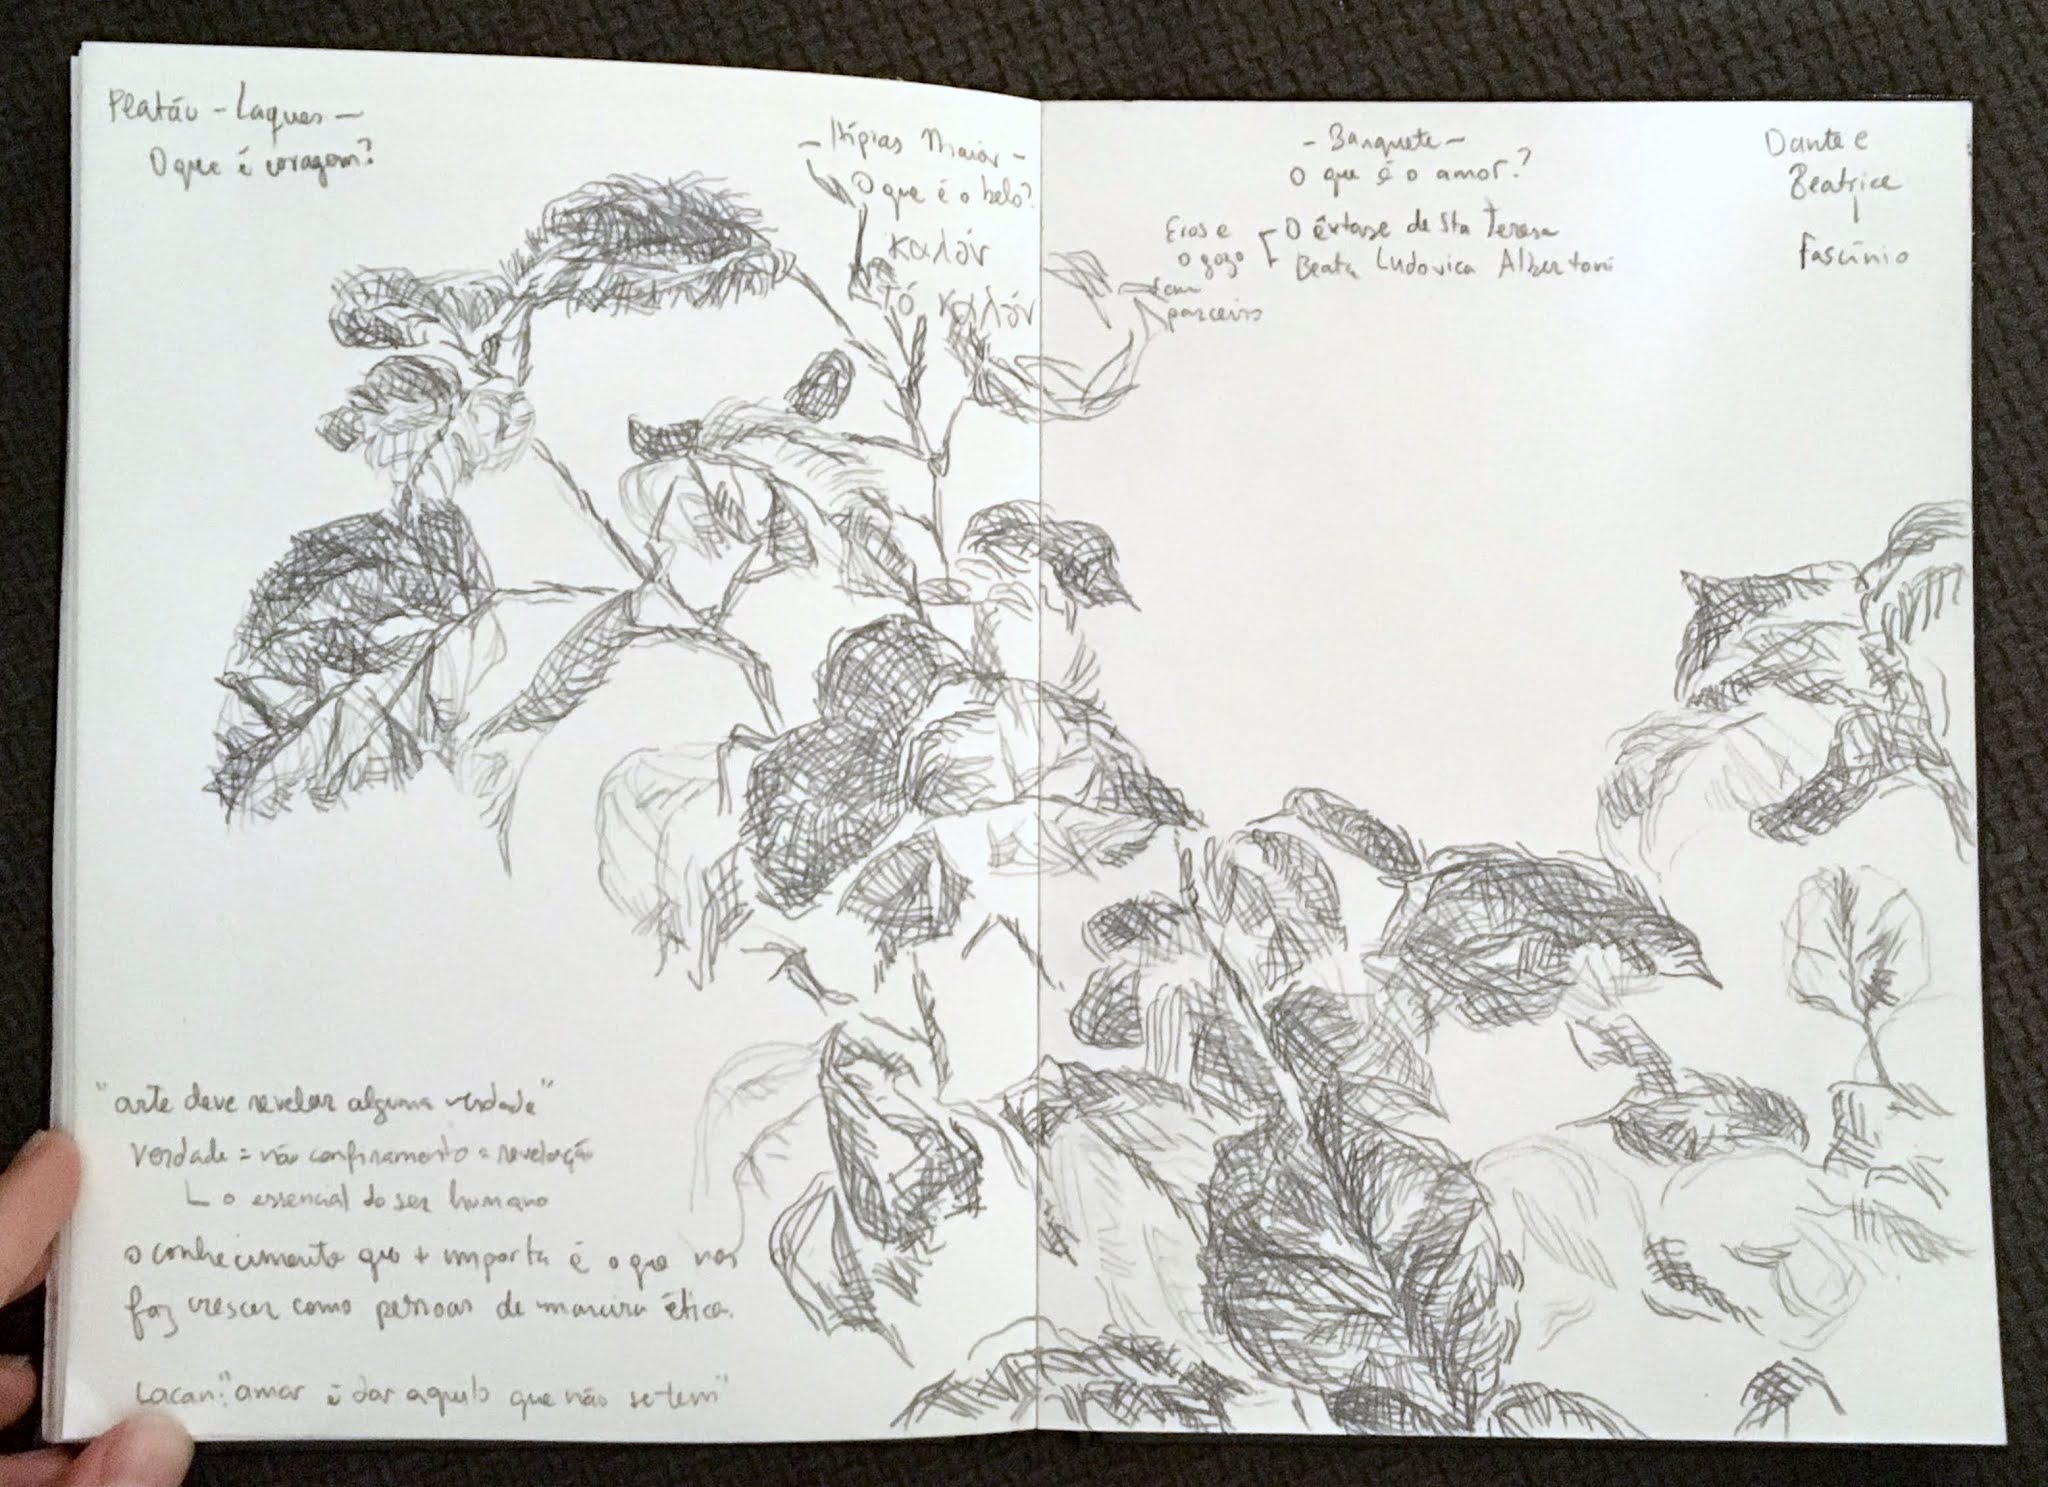 Platão - Laques -
O que é coragem?
- Hípias Maior -
O que é o belo?
καλόν
τό καλόν
- Banquete -
O que é o amor?
Eros e
o gozo
O êxtase de Sta Teresa
Beata Ludovica Albertoni
sem
parceiro
Dante e
Beatrice
Fascínio
"arte deve revelar alguma verdade"
verdade = não confinamento = revelação
o essencial do ser humano
o conhecimento que + importa é o que nos
faz crescer como pessoas de maneira ética.
Lacan: "amar é dar aquilo que não se tem"